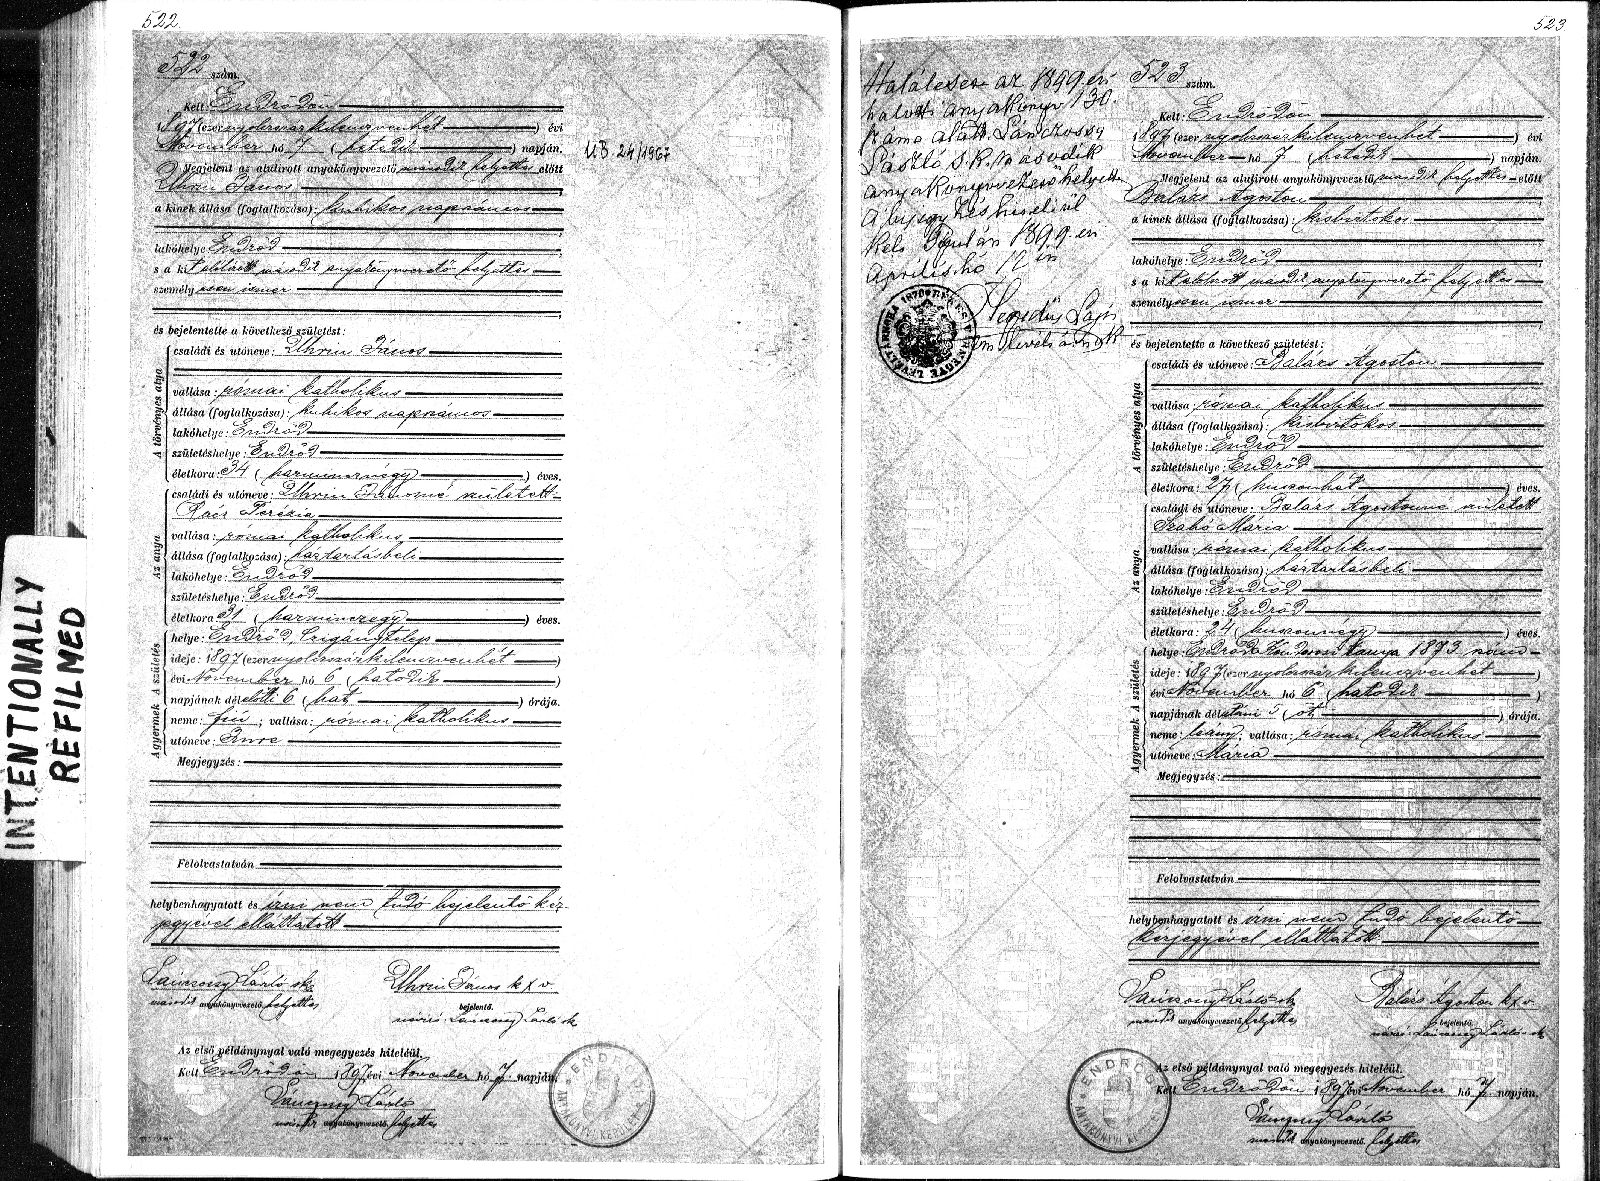 522.
522 szám.
Kelt: Endrődön
1897 (ezernyolczszázkilenczvenhét) évi
November hó 7 (hetedik) napján.
Megjelent az alulirott anyakönyvvezető második helyettes előtt
Uhrin János
a kinek állása (foglalkozása): kubikos napszámos
lakóhelye Endrőd
s a kit alólirott második anyakönyvvezető helyettes
személyesen ismer
és bejelentette a következő születést:
A törvényes atya
családi és utóneve: Uhrin János
vallása: római katholikus
állása (foglalkozása): kubikos napszámos
lakóhelye: Endrőd
születéshelye: Endrőd
életkora: 34 (harmincznégy) éves.
Az anya
családi és utóneve: Uhrin Jánosné született
Terézia
vallása: római katholikus
állása (foglalkozása): háztartásbeli
lakóhelye: Endrőd
születéshelye: Endrőd
életkora 31 (harminczegy) éves.
A születés
helye: Endrőd, Czigánytelep
ideje: 1897 (ezernyolczszázkilenczvenhét)
évi November hó 6 (hatodik)
napjának délelőtti 6 (hat) órája.
A gyermek
neme: fiú; vallása: római katholikus
utóneve: Imre
Megjegyzés:
Felolvastatván
helybenhagyatott és írni nem tudó bejelentő kéz-
jegyével elláttatott
László sk.
második anyakönyvvezető helyettes
Uhrin János k x v.
bejelentő.
László sk
Az első példánynyal való megegyezés hiteléül.
Kelt Endrődön 1897 évi November hó 7. napján.
László
második anyakönyvvezető helyettes
ENDRŐD
U.B. 24/1967
INTENTIONALLY
REFILMED
523
Haláleset az 1899. évi
halotti anyakönyv 130.
száma alatt.
László s.k. második
anyakönyvvezető helyettes
A bejegyzés hiteléül
Kelt Gyulán 1899. évi
április hó 12 én
Lajos
levéltárnok
BÉKÉS VÁRMEGYE LEVÉLTÁRA 1870
523 szám.
Kelt: Endrődön
1897 (ezernyolczszázkilenczvenhét) évi
November hó 7 (hetedik) napján.
Megjelent az alulirott anyakönyvvezető második helyettes előtt
Balázs Ágoston
a kinek állása (foglalkozása): kisbirtokos
lakóhelye: Endrőd
s a kit alólirott második anyakönyvvezető helyettes
személyesen ismer
és bejelentette a következő születést:
A törvényes atya
családi és utóneve: Balázs Ágoston
vallása: római katholikus
állása (foglalkozása): kisbirtokos
lakóhelye: Endrőd
születéshelye: Endrőd
életkora: 27 (huszonhét) éves.
Az anya
családi és utóneve: Balázs Ágostonné született
Szabó Mária
vallása: római katholikus
állása (foglalkozása): háztartásbeli
lakóhelye: Endrőd
születéshelye: Endrőd
életkora: 24 (huszonnégy) éves.
A születés
helye: Endrőd tanya 1873 szám
ideje: 1897 (ezernyolczszázkilenczvenhét)
évi November hó 6 (hatodik)
napjának délutáni 5 (öt) órája.
A gyermek
neme: leány; vallása: római katholikus
utóneve: Mária
Megjegyzés:
Felolvastatván
helybenhagyatott és írni nem tudó bejelentő
kézjegyével elláttatott
László sk
második anyakönyvvezető helyettes
Balázs Ágoston k x v.
bejelentő.
László sk
Az első példánynyal való megegyezés hiteléül.
Kelt Endrődön 1897 évi November hó 7 napján.
László
második anyakönyvvezető helyettes
ENDRŐD